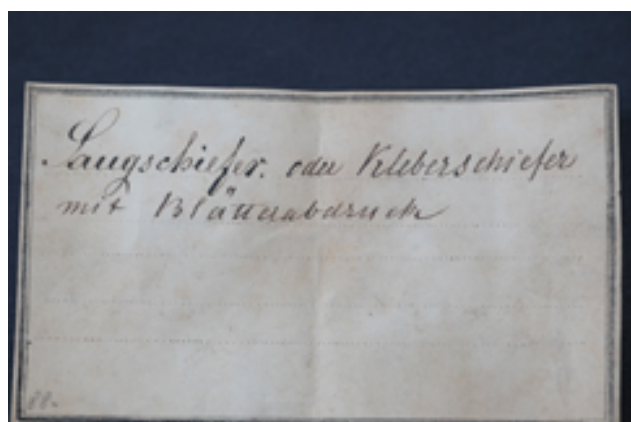 Saugschiefer. oder Kleberschiefer
mit Blätterabdruck
88.